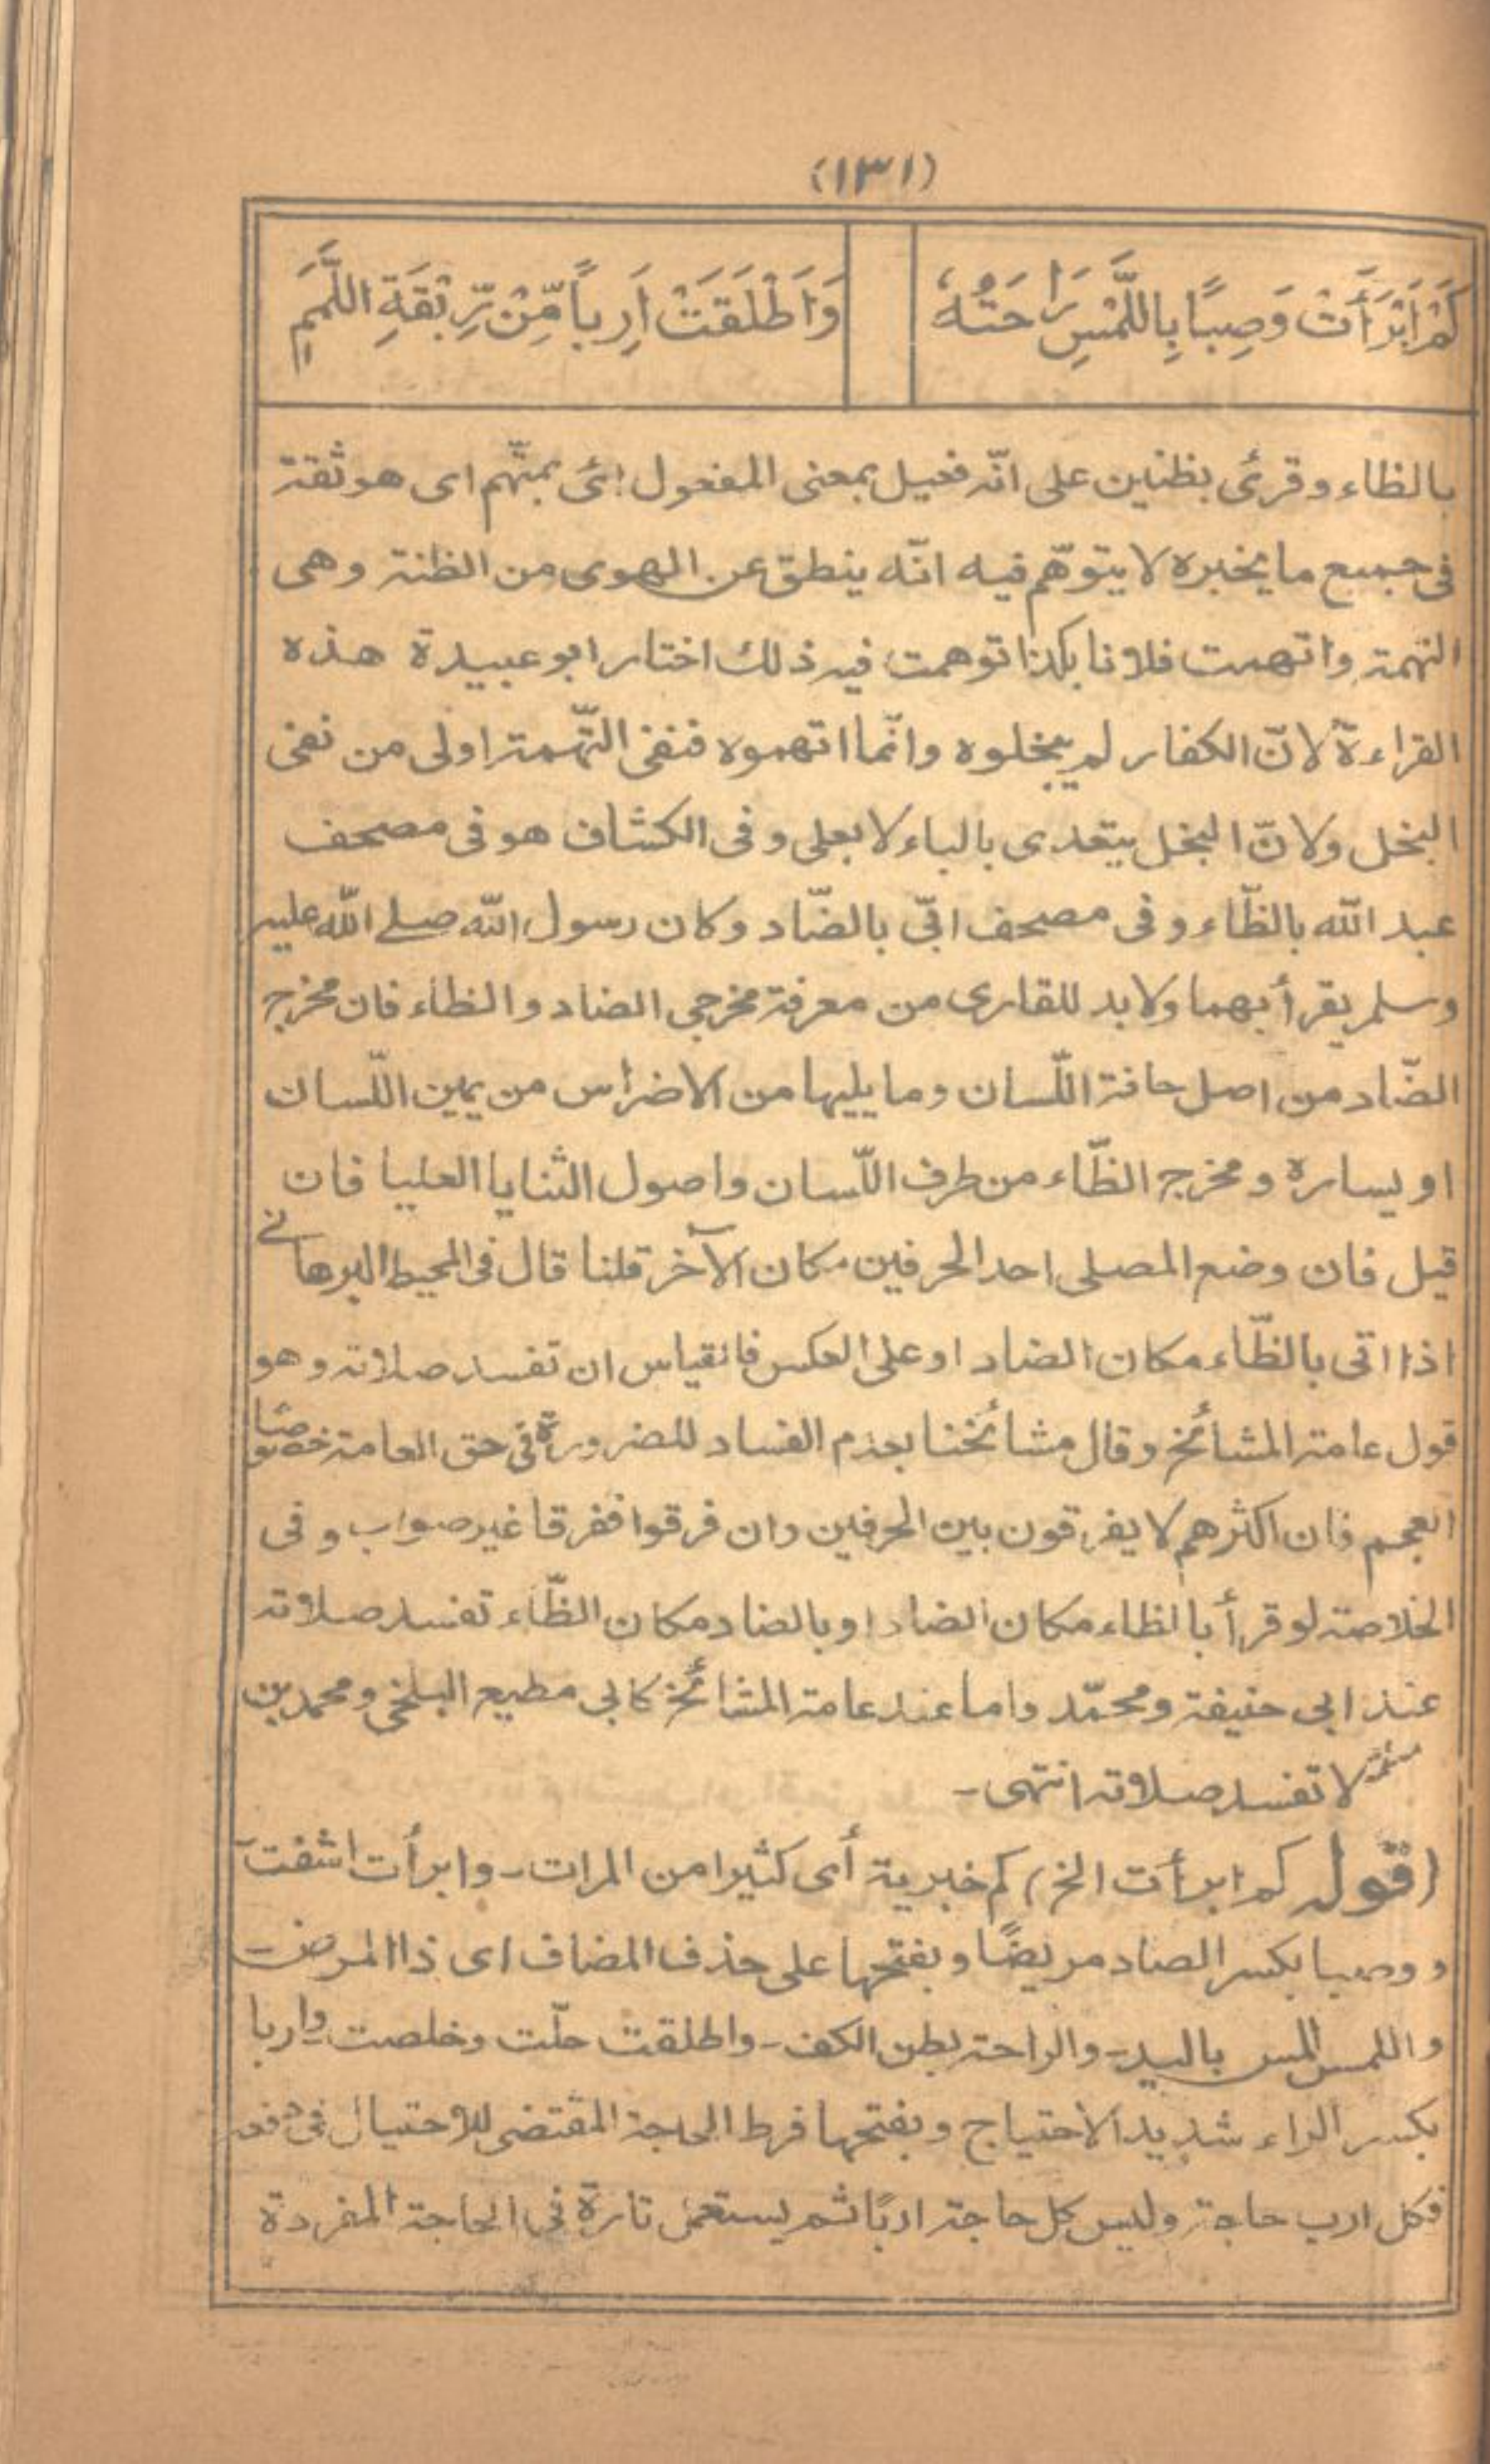 (١٣١)
كَمْ اَبْرَأَتْ وَصِبًا بِاللَّمْسِ رَاحَتُهٗ
وَاَطْلَقَتْ اَرِبًا مِّنْ رِّبْقَةِ اللَّمَمِ
بالظاء وقرئ بظنين على انّه فعيل بمعنى المفعول ائ بمتّهم اى هو ثقة
فى جميع ما يخبره لا يتوّهم فيه انّه ينطق عن الهوى من الظنة وهى
التهمة واتهمت فلانا بكذا توهمت فيه ذلك اختار ابو عبيدة هذه
القراءة لانّ الكفار لم يبخلوه وانّما اتهموه فنفى التّهمة اولى من نفى
البخل ولانّ البخل يتعدى بالباء لا بعلى وفى الكشاف هو فى مصحف
عبد الله بالظّاء وفى مصحف ابّى بالضّاد وكان رسول الله صلے الله عليه
وسلم يقرأ بهما ولا بد للقارى من معرفة مخرجى الضاد والظاء فان مخرج
الضّاد من اصل حافة اللّسان وما يليها من الاضراس من يمين اللّسان
او يساره ومخرج الظّاء من طرف اللّسان واصول الثنايا العليا فان
قيل فان وضع المصلى احد الحرفين مكان الآخر قلنا قال فى المحيط البرهانے
اذا اتى بالظّاء مكان الضاد او على العكس فالقياس ان تفسد صلاته وهو
قول عامة المشائخ وقال مشائخنا بعدم الفساد للضرورة فى حق العامة خصوصًا
العجم فان اكثرهم لا يفرقون بين الحرفين وان فرقوا ففرقا غير صواب وفى
الخلاصة لو قرأ بالظاء مكان الضاد او بالضاد مكان الظّاء تفسد صلاته
عند ابى حنيفة ومحمّد واما عند عامة المشائخ كابى مطيع البلخى ومحمد بن
سلمة لا تفسد صلاته انتهى۔
(قوله كم ابرأت الخ) كم خبرية أى كثيرا من المرات۔ وابرأت اشفت
ووصبا بكسر الصاد مريضًا وبفتحها على حذف المضاف اى ذا المرض
واللمس المس باليد۔ والراحة بطن الكف۔ واطلقت حلّت وخلصت۔ واربا
بكسر الراء شديد الاحتياج وبفتحها فرط الحاجة المقتضى للاحتيال فى دفعه
فكل ارب حاجة وليس كل حاجة اربًا ثم يستعمل تارة فى الحاجة المفردة